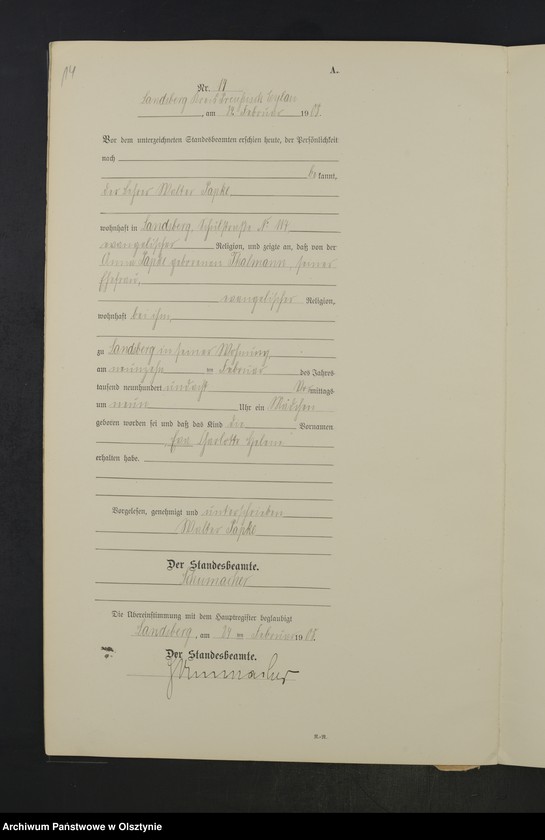 A.
Nr. 19
Landsberg Kreis Preußisch Eylau
, am 22 Februar 1908.
Vor dem unterzeichneten Standesbeamten erschien heute, der Persönlichkeit
nach
bekannt,
der Lehrer Walter Papke
wohnhaft in Landsberg, Schulstraße N
evangelischer Religion, und zeigte an, daß von der
Anna Papke geborenen Thalmann, seiner
Ehefrau,
evangelischer Religion,
wohnhaft bei ihm,
zu Landsberg in seiner Wohnung
am neunzehn ten Februar des Jahres
tausend neunhundert und acht Vormittags
um neun Uhr ein Mädchen
geboren worden sei und daß das Kind die Vornamen
Eva Charlotte Helene
erhalten habe.
Vorgelesen, genehmigt und unterschrieben
Walter Papke
Der Standesbeamte.
Schumacher
Die Übereinstimmung mit dem Hauptregister beglaubigt
Landsberg, am ten Februar 1908.
Der Standesbeamte.
Schumacher
Archiwum Państwowe w Olsztynie